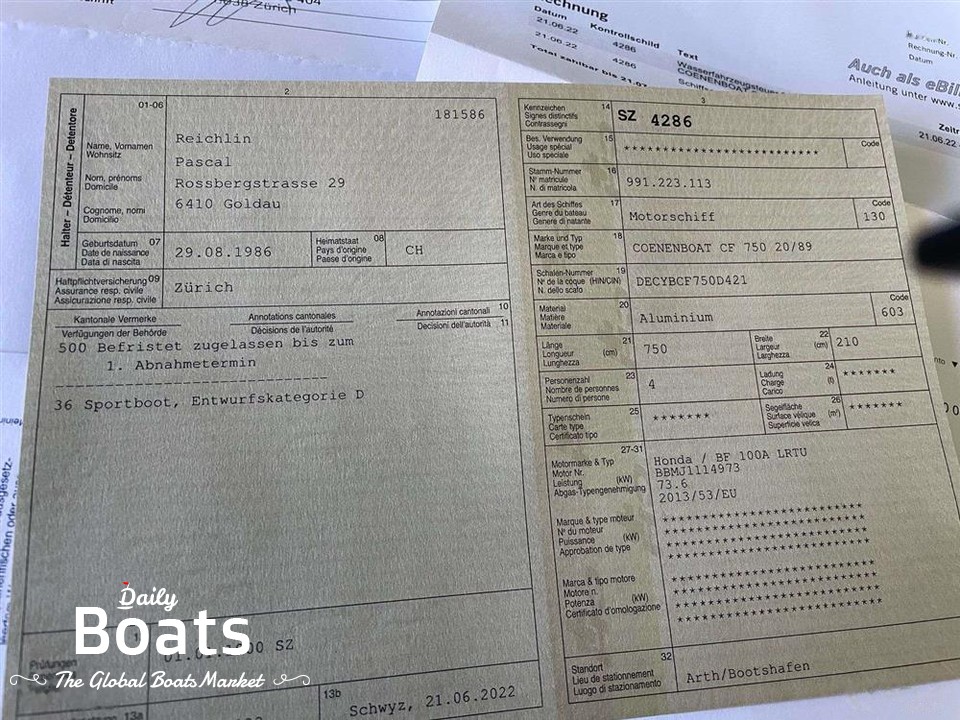 Zürich
chnung
Datum
Kontrollschild
Text
21.06.22
4286
Wasserfahrzeugsteuer
21.06.22
4286
COENENBOAT
Total zahlbar bis
Rechnung-Nr.
Datum
Auch als eBill
Anleitung unter www.s
21.06.22
2
01-06
181586
Halter – Détenteur – Detentore
Name, Vornamen
Wohnsitz
Nom, prénoms
Domicile
Cognome, nomi
Domicilio
Reichlin
Pascal
Rossbergstrasse 29
6410 Goldau
Geburtsdatum 07
Date de naissance
Data di nascita
29.08.1986
Heimatstaat 08
Pays d'origine
Paese d'origine
CH
Haftpflichtversicherung 09
Assurance resp. civile
Assicurazione resp. civile
Zürich
Kantonale Vermerke
Annotations cantonales
Annotazioni cantonali 10
Verfügungen der Behörde
Décisions de l'autorité
Decisioni dell'autorità 11
500 Befristet zugelassen bis zum
1. Abnahmetermin
------------------------------
36 Sportboot, Entwurfskategorie D
Prüfungen
SZ
13a
13b
Schwyz, 21.06.2022
3
Kennzeichen 14
Signes distinctifs
Contrassegni
SZ 4286
Bes. Verwendung 15
Usage spécial
Uso speciale
**************************
Code
Stamm-Nummer 16
N° matricule
N. di matricola
991.223.113
Art des Schiffes 17
Genre du bateau
Genere di natante
Motorschiff
Code
130
Marke und Typ 18
Marque et type
Marca e tipo
COENENBOAT CF 750 20/89
Schalen-Nummer 19
N° de la coque (HIN/CIN)
N. dello scafo
DECYBCF750D421
Material 20
Matière
Materiale
Aluminium
Code
603
Länge 21
Longueur (cm)
Lunghezza
750
Breite 22
Largeur (cm)
Larghezza
210
Personenzahl 23
Nombre de personnes
Numero di persone
4
Ladung 24
Charge (t)
Carico
*******
Typenschein 25
Carte type
Certificato tipo
*******
Segelfläche 26
Surface vélique (m²)
Superficie velica
*******
27-31
Motormarke & Typ
Motor Nr.
Leistung (kW)
Abgas-Typengenehmigung
Honda / BF 100A LRTU
BBMJ1114973
73.6
2013/53/EU
Marque & type moteur
N° du moteur
Puissance (kW)
Approbation de type
**************************
**************************
**************************
**************************
Marca & tipo motore
Motore n.
Potenza (kW)
Certificato d'omologazione
**************************
**************************
**************************
**************************
Standort 32
Lieu de stationnement
Luogo di stazionamento
Arth/Bootshafen
Daily
Boats
The Global Boats Market